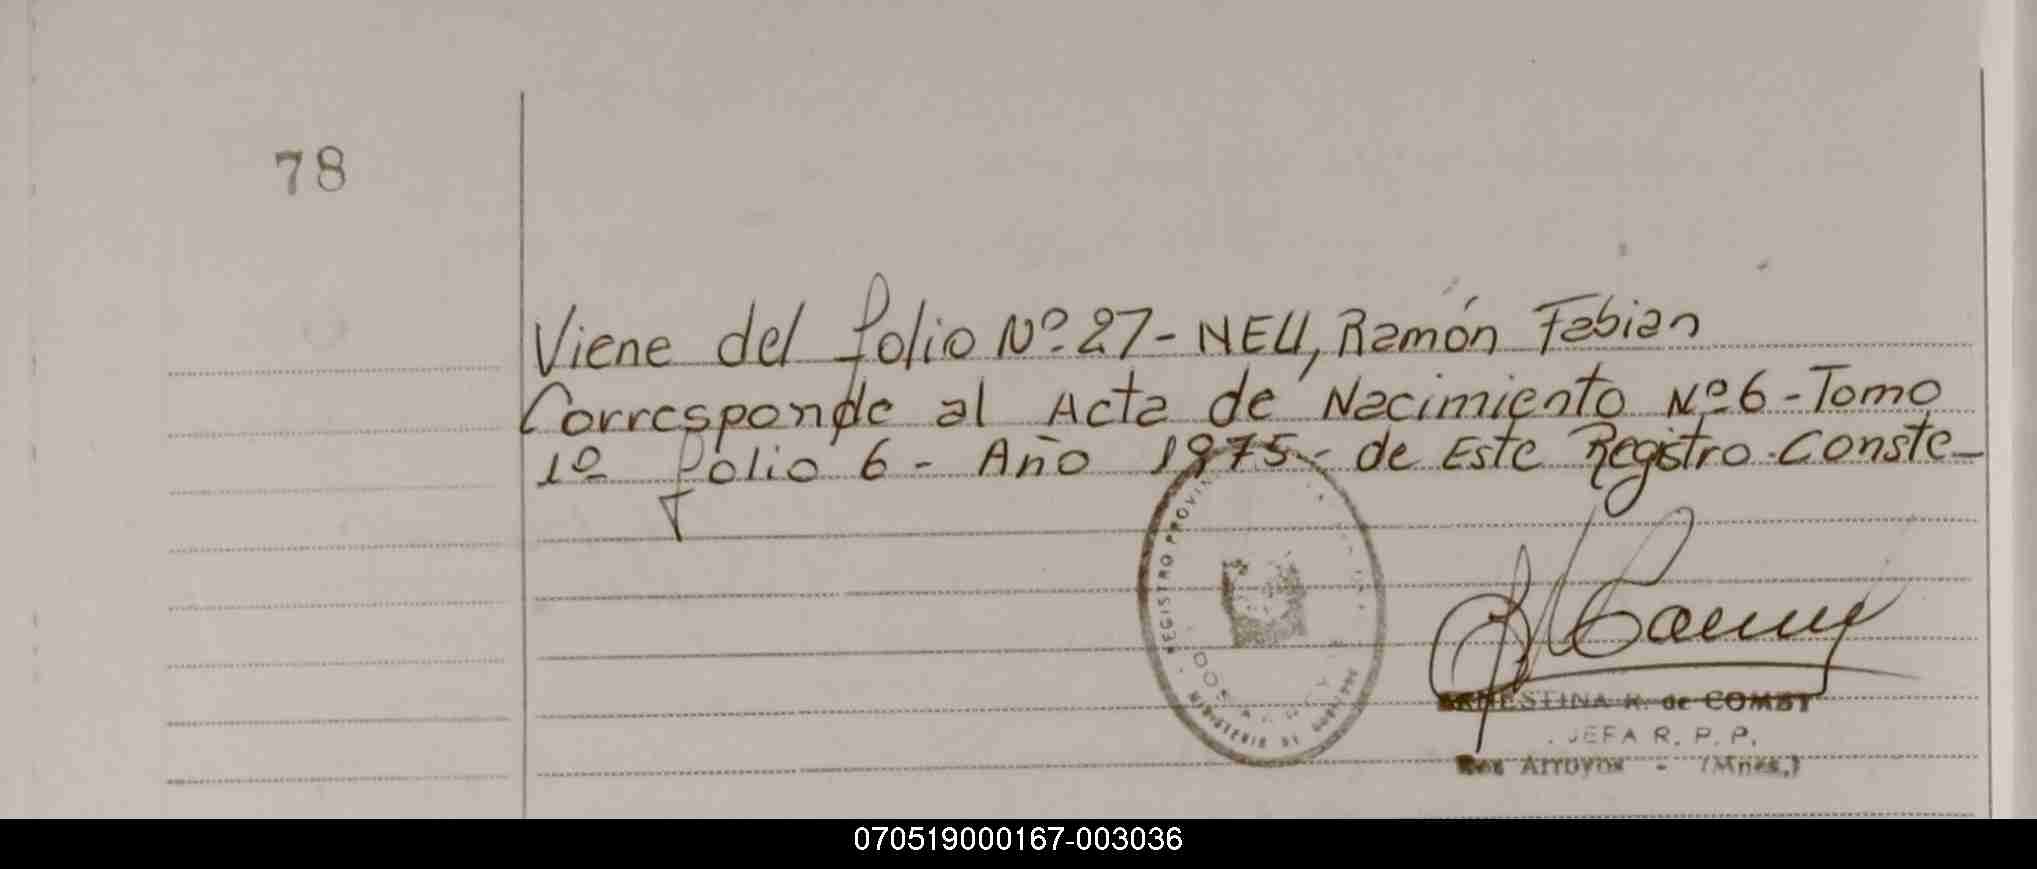 78
Viene del folio Nº 27 - NEU, Ramón Fabian
Corresponde al Acta de Nacimiento Nº 6 - Tomo
1º folio 6 - Año 1975 - de Este Registro. Conste_
REGISTRO PROVIN
MINISTERIO DE GOBIERNO
ERNESTINA R. de COMBY
JEFA R. P. P.
Dos Arroyos - (Mnes.)
070519000167-003036